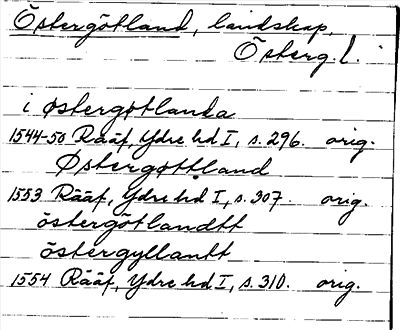 Östergötland, landskap.
Österg. l.
i østergøtlanda
1544-50 Rääf, Ydre hd I, s. 296. orig.
Østergøttland
1553 Rääf, Ydre hd I, s. 307. orig.
östergötlandtt
östergyllantt
1554 Rääf, Ydre hd I, s. 310. orig.